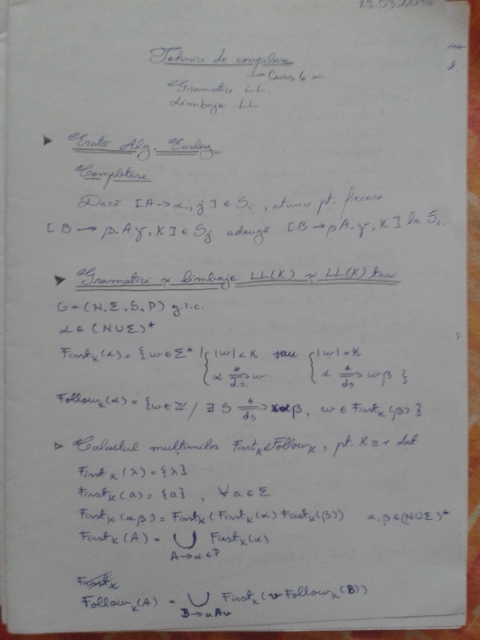 Tehnici de compilare
Curs 6
Gramatici LL
Limbaje LL
Erata Alg. Earley
Completare
Dacă [A → α., j] ∈ Si, atunci pt. fiecare
[B → β.Aγ, K] ∈ Sj adaugă [B → βA.γ, K] la Si.
Gramatici și limbaje LL(K) și LL(K) tari
G = (N, Σ, S, P) g.i.c.
α ∈ (N∪Σ)*
FirstK(α) = {w ∈ Σ* | { |w| < K sau { |w| = K
α *⇒ds w α *⇒ds wβ }
FollowK(α) = {w ∈ Σ* / ∃ S *⇒ds γαβ, w ∈ FirstK(β)}
Calculul mulțimilor FirstK & FollowK, pt. K ≥ 1 dat
FirstK(λ) = {λ}
FirstK(a) = {a}, ∀ a ∈ Σ
FirstK(αβ) = FirstK(FirstK(α) FirstK(β)) α, β ∈ (N∪Σ)*
FirstK(A) = ∪ FirstK(α)
A→α∈P
FollowK(A) = ∪ FirstK(v FollowK(B))
B→uAv